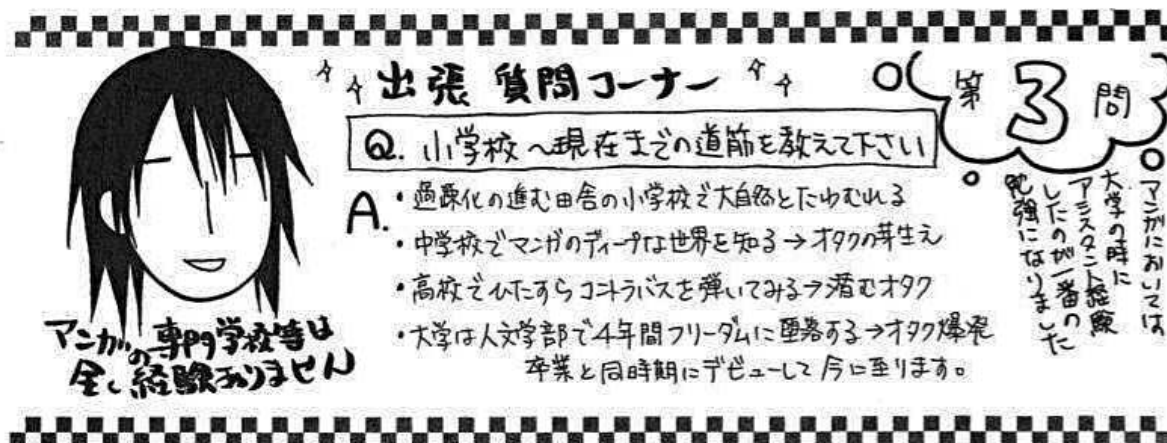 出張 質問コーナー
第3問
Q. 小学校~現在までの道筋を教えて下さい
A.
・過疎化の進む田舎の小学校で大自然とたわむれる
・中学校でマンガのディープな世界を知る→オタクの芽生え
・高校でひたすらコントラバスを弾いてみる→潜むオタク
・大学は人文学部で4年間フリーダムに堕落する→オタク爆発
卒業と同時期にデビューして今に至ります。
マンガにおいては
大学の時に
アシスタント経験
したのが一番の
勉強になりました
マンガの専門学校等は
全く経験ありません